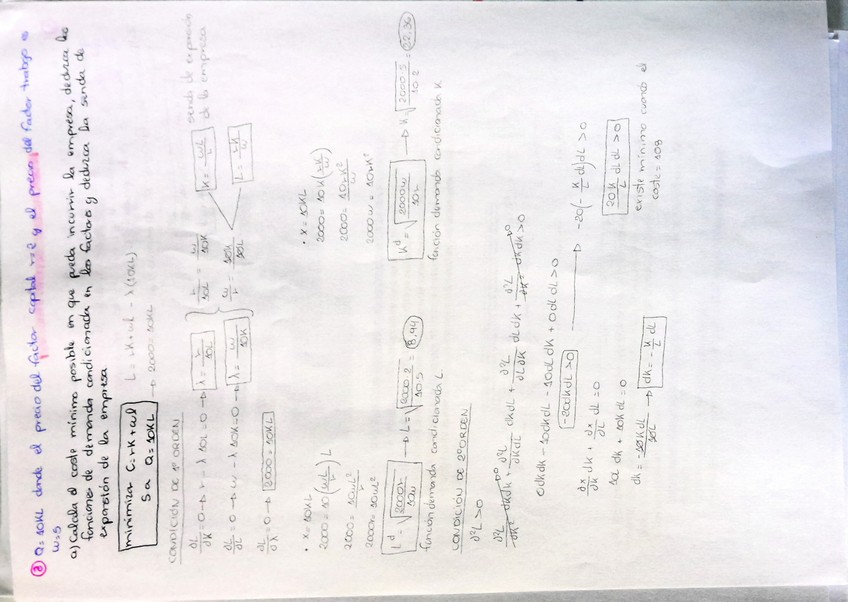 ② Q=10KL donde el precio del factor capital r=2 y el precio del factor trabajo es
w=5
a) Calcula el coste mínimo posible en que pueda incurrir la empresa, deduzca las
funciones de demanda condicionada en los factores y deduzca la senda de
expansión de la empresa
minimizar C=rK+wL
s.a Q=10KL
L=rK+wL-λ(10KL)
→ 2000=10KL
CONDICIÓN DE 1º ORDEN
∂L/∂K=0→r-λ10L=0→λ=r/10L
∂L/∂L=0→w-λ10K=0→λ=w/10K
∂L/∂λ=0→2000=10KL
r/10L=w/10K
w/r=10K/10L
K=wL/r
L=rK/w
senda de expansión
de la empresa
• x=10KL
2000=10(wL/r)L
2000=10wL²/r
2000r=10wL²
L^d=√(2000r/10w)→L=√(2000·2/10·5)=8,94
función demanda condicionada L
• x=10KL
2000=10K(rK/w)
2000=10rK²/w
2000w=10rK²
K^d=√(2000w/10r)→K√(2000·5/10·2)=22,36
función demanda condicionada K
CONDICIÓN DE 2º ORDEN
∂²L>0
∂²L/∂K² dKdK+∂²L/∂K∂L dKdL+∂²L/∂L∂K dLdK+∂²L/∂K² dKdK>0
0dKdK-10dKdL-10dLdK+0dLdL>0
-20dKdL>0→-20(-K/L dL)dL>0
∂x/∂K dK+∂x/∂L dL=0
10LdK+10KdL=0
dK=-10KdL/10L→dK=-K/L dL
20K/L dLdL>0
existe mínimo cuando el
coste=